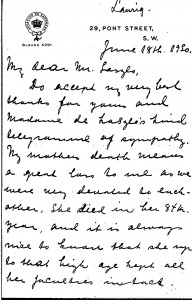 29, PONT STREET,
S. W.
SLOANE 5201.
June 18th. 1930.
My dear Mr. Laszlo,
Do accept my very best
thanks for yours and
Madame de Laszlo's kind
telegramme of sympathy.
My mothers death means
a great loss to me as we
were very devoted to each-
other. She died in her 84th
year, and it is always
nice to know that she up
to that high age kept all
her faculties intact.